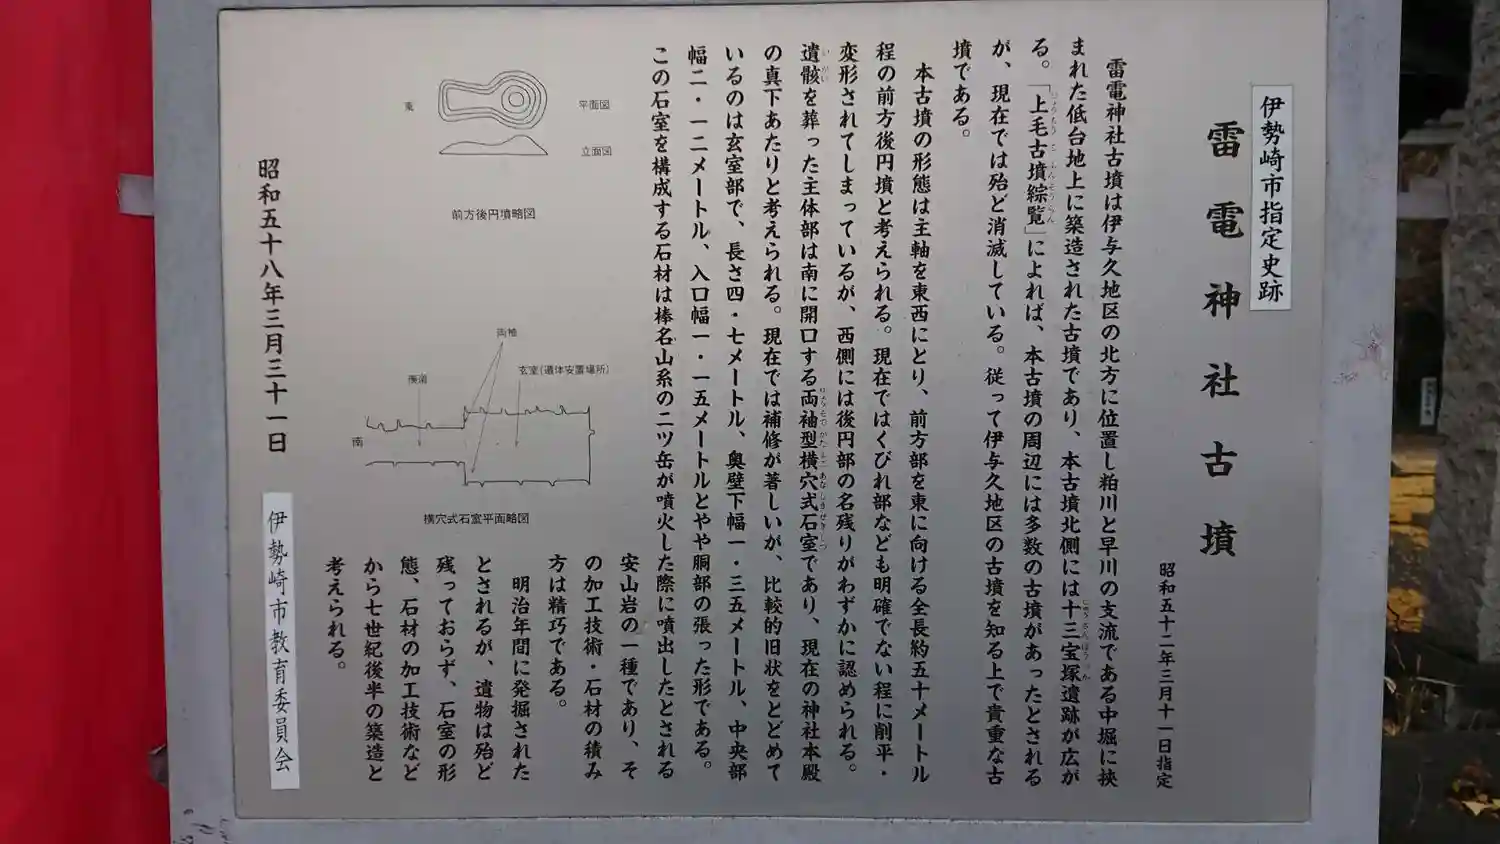 伊勢崎市指定史跡
雷電神社古墳
昭和五十二年三月十一日指定
雷電神社古墳は伊与久地区の北方に位置し粕川と早川の支流である中堀に挾
まれた低台地上に築造された古墳であり、本古墳北側には十三宝塚遺跡が広が
る。「上毛古墳綜覧」によれば、本古墳の周辺には多数の古墳があったとされる
が、現在では殆ど消滅している。従って伊与久地区の古墳を知る上で貴重な古
墳である。
本古墳の形態は主軸を東西にとり、前方部を東に向ける全長約五十メートル
程の前方後円墳と考えられる。現在ではくびれ部なども明確でない程に削平・
変形されてしまっているが、西側には後円部の名残りがわずかに認められる。
遺骸を葬った主体部は南に開口する両袖型横穴式石室であり、現在の神社本殿
の真下あたりと考えられる。現在では補修が著しいが、比較的旧状をとどめて
いるのは玄室部で、長さ四・七メートル、奥壁下幅一・三五メートル、中央部
幅二・一二メートル、入口幅一・一五メートルとやや胴部の張った形である。
この石室を構成する石材は榛名山系の二ツ岳が噴火した際に噴出したとされる
安山岩の一種であり、そ
の加工技術・石材の積み
方は精巧である。
明治年間に発掘された
とされるが、遺物は殆ど
残っておらず、石室の形
態、石材の加工技術など
から七世紀後半の築造と
考えられる。
東
平面図
立面図
前方後円墳略図
両袖
玄室(遺体安置場所)
羨道
南
横穴式石室平面略図
昭和五十八年三月三十一日
伊勢崎市教育委員会